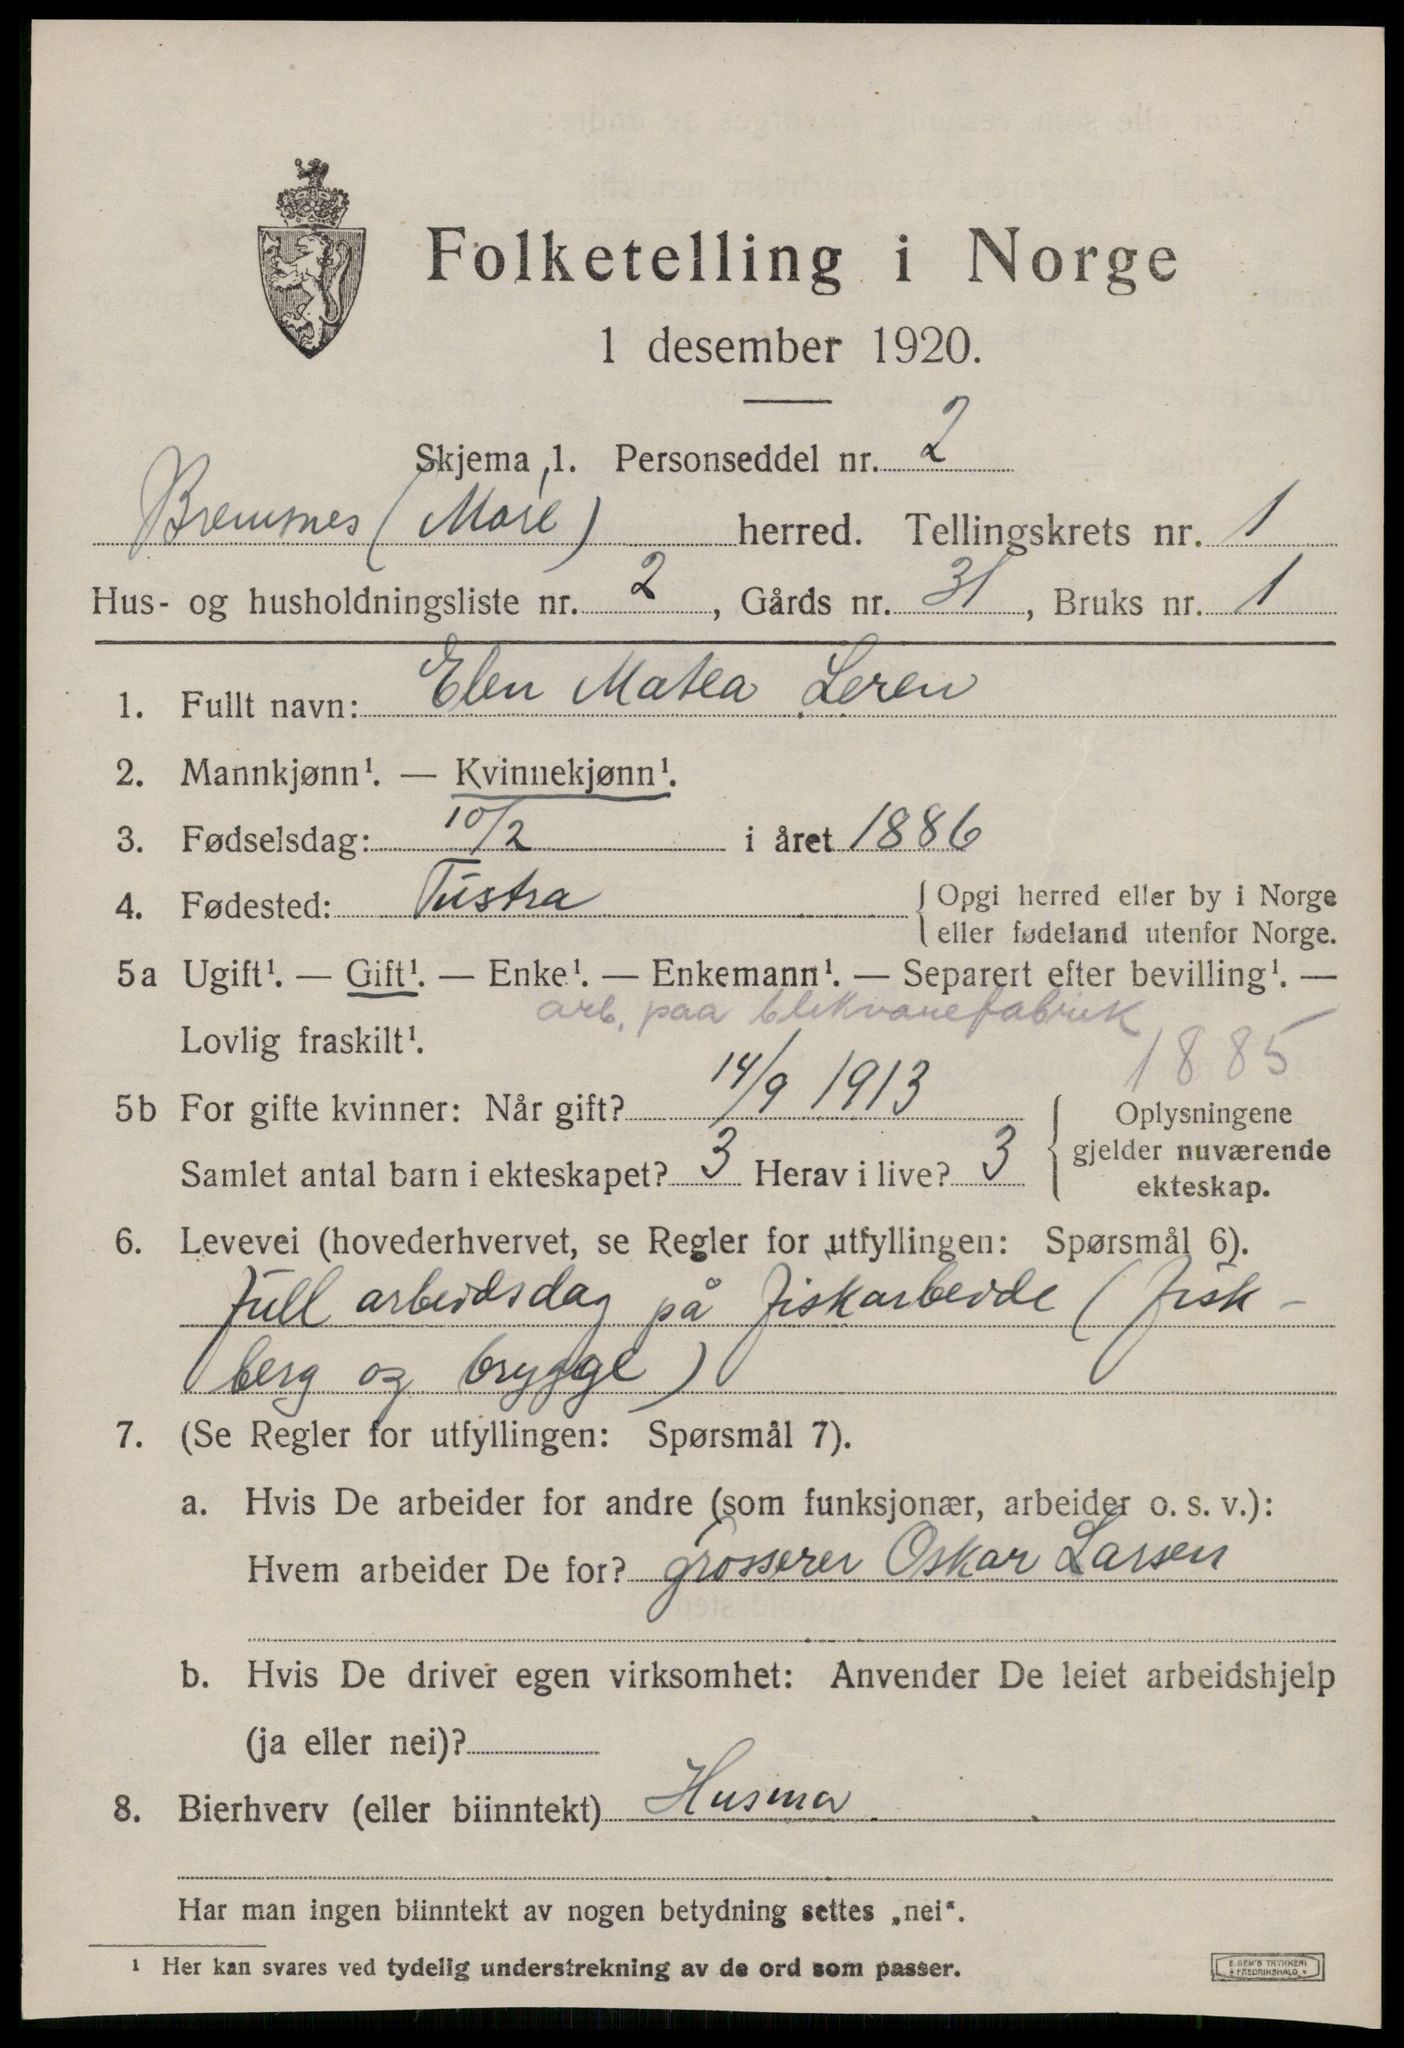 Folketelling i Norge
1 desember 1920.
Skjema 1. Personseddel nr. 2
Bremsnes (Møre) herred. Tellingskrets nr. 1
Hus- og husholdningsliste nr. 2, Gårds nr. 31, Bruks nr. 1
1. Fullt navn: Elen Matea Leren
2. Mannkjønn¹. — Kvinnekjønn¹.
3. Fødselsdag: 10/2 i året 1886
4. Fødested: Tustra { Opgi herred eller by i Norge
eller fødeland utenfor Norge.
5a Ugift¹. — Gift¹. — Enke¹. — Enkemann¹. — Separert efter bevilling¹. —
arb. paa blikvarefabrik
Lovlig fraskilt¹. 1885
5b For gifte kvinner: Når gift? 14/9 1913 { Oplysningene
gjelder nuværende
Samlet antal barn i ekteskapet? 3 Herav i live? 3 ekteskap.
6. Levevei (hovederhvervet, se Regler for utfyllingen: Spørsmål 6).
Full arbeidsdag på fiskarbeide (fisk-
berg og brygge)
7. (Se Regler for utfyllingen: Spørsmål 7).
a. Hvis De arbeider for andre (som funksjonær, arbeider o. s. v.):
Hvem arbeider De for? grosserer Oskar Larsen
b. Hvis De driver egen virksomhet: Anvender De leiet arbeidshjelp
(ja eller nei)?
8. Bierhverv (eller biinntekt) Husmor
Har man ingen biinntekt av nogen betydning settes „nei".
¹ Her kan svares ved tydelig understrekning av de ord som passer.
E. SEM'S TRYKKERI
FREDRIKSHALD